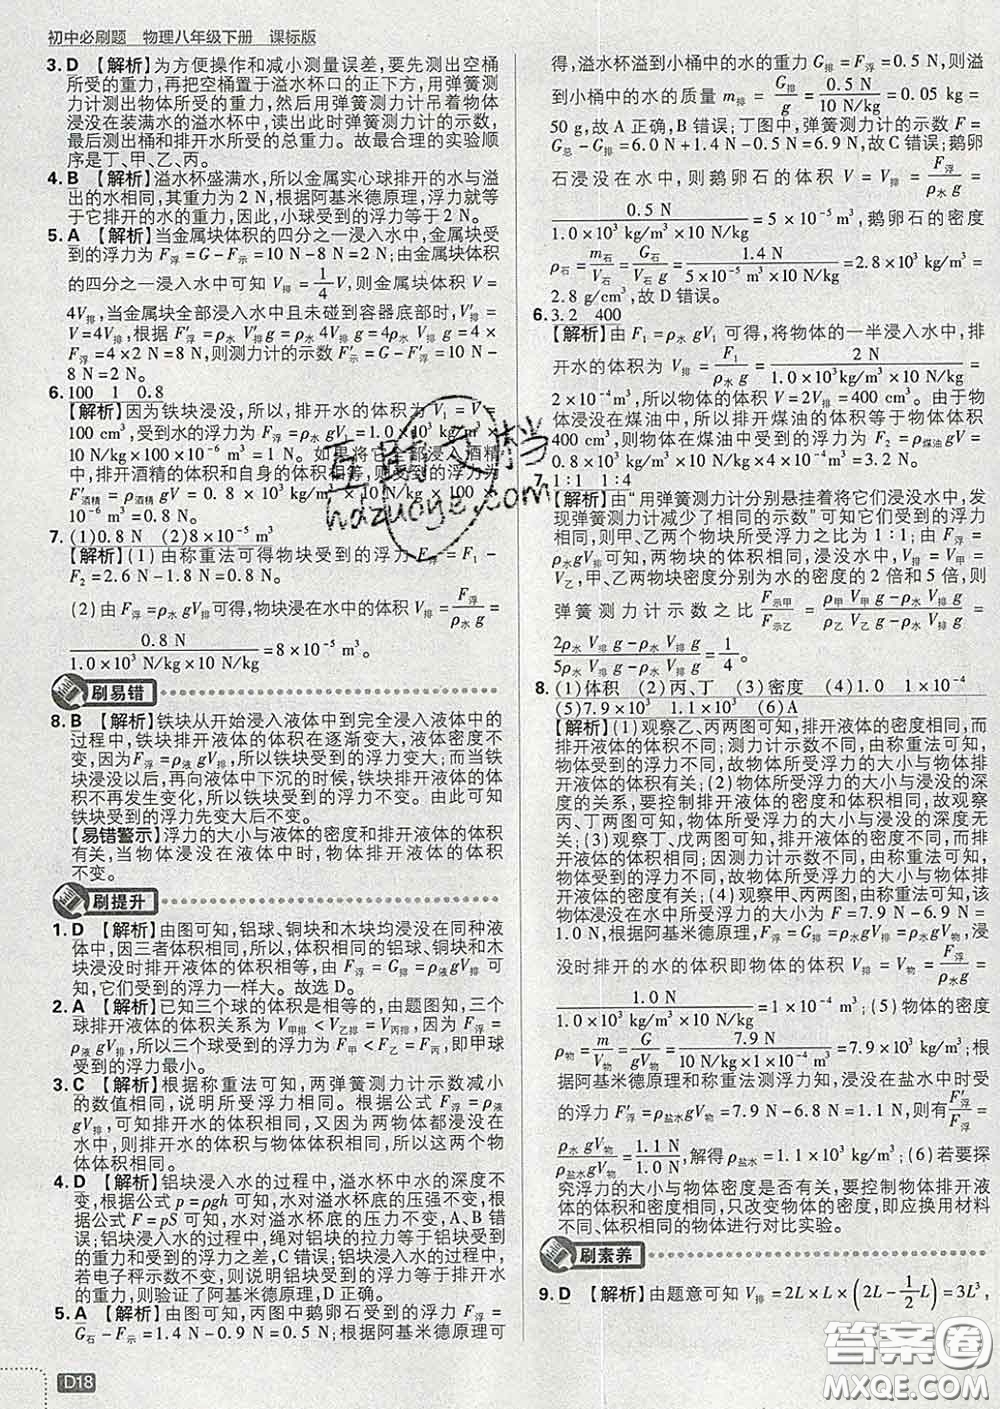 初中必刷题 物理八年级下册 课标版
3. D 【解析】为方便操作和减小测量误差，要先测出空桶
所受的重力，再把空桶置于溢水杯口的正下方，用弹簧测
力计测出物体所受的重力，然后用弹簧测力计吊着物体
浸没在装满水的溢水杯中，读出此时弹簧测力计的示数，
最后测出桶和排开水所受的总重力。故最合理的实验顺
序是丁、甲、乙、丙。
4. B 【解析】溢水杯盛满水，所以金属实心球排开的水与溢
出的水相同，其重力为 2 N，根据阿基米德原理，浮力就等
于它排开的水的重力，因此，小球受到的浮力等于 2 N。
5. A 【解析】当金属块体积的四分之一浸入水中，金属块受
到的浮力为 F浮=G-F示=10 N-8 N=2 N；由金属块体积
的四分之一浸入水中可知 V排=1/4 V，则金属块体积 V=
4V排，当金属块全部浸入水中且未碰到容器底部时，V′排=
V=4V排，根据 F′浮=ρ水 V′排g=ρ水 4V排g=4ρ水 V排g=4×
F浮=4×2 N=8 N，则测力计的示数 F′示=G-F′浮=10 N-
8 N=2 N。
6. 100 1 0.8
【解析】因为铁块浸没，所以，排开水的体积为 V₁=V=
100 cm³，受到水的浮力为 F浮=ρ水gV排=1.0×10³
10 N/kg×100×10⁻⁶ m³=1 N。如果将它全部浸入酒精
中，排开酒精的体积和自身的体积相等，则受到的浮力
F′酒精=ρ酒精gV=0.8×10³ kg/m³×10 N/kg×100×
10⁻⁶ m³=0.8 N。
7. (1)0.8 N (2)8×10⁻⁵ m³
【解析】(1)由称重法可得物块受到的浮力 F浮=F₁-
F₂=2.6 N-1.8 N=0.8 N。
(2)由 F浮=ρ水gV排可得，物块浸在水中的体积 V排=F浮/(ρ水g)=
0.8 N/(1.0×10³ N/kg×10 N/kg)=8×10⁻⁵ m³。
刷易错
8. B 【解析】铁块从开始浸入液体中到完全浸入液体中的
过程中，铁块排开液体的体积在逐渐变大，液体密度不
变，因为F浮=ρ液gV排，所以铁块受到的浮力变大；而当铁
块浸没以后，再向液体中下沉的时候，铁块排开液体的体
积不再发生变化，所以铁块受到的浮力不变。由此可知
铁块受到的浮力先变大后不变。
【易错警示】浮力的大小与液体的密度和排开液体的体积
有关，当物体浸没在液体中时，物体排开液体的体积
不变。
刷提升
1. D 【解析】由图可知，铝球、铜块和木块均浸没在同种液
体中，因三者体积相同，所以，体积相同的铝球、铜块和木
块浸没时排开液体的体积相等，由 F浮=G排=ρ液gV排可
知，它们受到的浮力一样大。故选 D。
2. A 【解析】已知三个球的体积是相等的，由题图知，三个
球排开液体的体积关系为 V甲排<V乙排=V丙排，因为 F浮=
ρ液gV排，所以三个球受到的浮力为 F甲<F乙=F丙，即甲球
受到的浮力最小。
3. C 【解析】根据称重法可知，两弹簧测力计示数减小
的数值相同，说明所受浮力相同。根据公式 F浮=ρ液
gV排，可知排开水的体积相同，又因为两物体都浸没在
水中，则排开水的体积与物体体积相同，所以这两个物
体体积相同。
4. D 【解析】铝块浸入水的过程中，溢水杯中水的深度不
变，根据公式 p=ρgh 可知，水对溢水杯底的压强不变，根
据公式 F=pS 可知，水对溢水杯底的压力不变，A、B错
误；铝块浸入水的过程中，绳对铝块的拉力等于铝块的
重力和受到的浮力之差，C 错误；铝块浸入水的过程中，
若电子秤示数不变，则说明铝块受到的浮力等于排开水
的重力，则验证了阿基米德原理，D 正确。
5. A 【解析】由图可知，丙图中鹅卵石受到的浮力 F浮=
G石-F示=1.4 N-0.9 N=0.5 N；根据阿基米德原理可
D18
得，溢水杯溢到小桶中的水的重力 G排=F浮=0.5 N，则溢
到小桶中的水的质量 m排=G排/g=0.5 N/(10 N/kg)=0.05 kg=
50 g，故 A 正确，B 错误；丁图中，弹簧测力计的示数 F=
G总-G排=6.0 N+1.4 N-0.5 N=6.9 N，故 C 错误；鹅卵
石浸没在水中，则鹅卵石的体积 V=V排=F浮/(ρ水g)=
0.5 N/(1.0×10³ kg/m³×10 N/kg)=5×10⁻⁵ m³，鹅卵石的密度
ρ石=m石/V石=G石/(V石g)=1.4 N/(5×10⁻⁵ m³×10 N/kg)=2.8×10³ kg/m³=
2.8 g/cm³，故 D 错误。
6. 3.2 400
【解析】由 F浮=ρ水gV₁ 可得，将物体的一半浸入水中，排
开水的体积为 V排=F₁/(ρ水g)=2 N/(1.0×10³ kg/m³×10 N/kg)=
2×10⁻⁴m³，所以物体的体积为 V=2V排=400 cm³。由于物
体浸没在煤油中，所以排开煤油的体积等于物体体积
400 cm³，则物体在煤油中受到的浮力为 F₂=ρ煤油gV=
0.8×10³ kg/m³×10 N/kg×4×10⁻⁴m³=3.2 N。
7. 1:1 1:4
【解析】由“用弹簧测力计分别悬挂着将它们浸没水中，发
现弹簧测力计减少了相同的示数”可知它们受到的浮力
相同，则甲、乙两个物块所受浮力之比为 1:1；由 F浮=
ρ水gV排可知，两物块的体积相同，浸没水中，V排=V甲=
V乙，甲、乙两物块密度分别为水的密度的 2 倍和 5 倍，则
弹簧测力计示数之比 F示甲/F示乙=(ρ甲V甲g-ρ水V排g)/(ρ乙V乙g-ρ水V排g)=
(2ρ水V排g-ρ水V排g)/(5ρ水V排g-ρ水V排g)=1/4。
8. (1)体积 (2)丙、丁 (3)密度 (4)1.0 1×10⁻⁴
(5)7.9×10³ 1.1×10³ (6)A
【解析】(1)观察乙、丙两图可知，排开液体的密度相同，而
排开液体的体积不同；测力计示数不同，由称重法可知，
物体所受浮力不同，故物体所受浮力的大小与排开液体
的体积有关；(2)物体所受浮力的大小与浸没的
深度的关系，要控制排开液体的密度和体积相同，故观察
丙、丁两图可知，物体所受浮力的大小与浸没的深度无
关；(3)观察丁、戊两图可知，排开液体的密度不同，而排
开液体的体积相同；测力计示数不同，由称重法可知，物
体所受浮力不同，因此物体所受浮力的大小与物体排
开液体的密度有关；(4)观察甲、丙两图，由称重法可知，
该物体浸没在水中所受浮力的大小为 F=7.9 N-6.9 N=
1.0 N，根据阿基米德原理，F浮=ρ水gV排=ρ水gV物，浸
没时排开的水的体积即物体的体积 V排=V物=F浮/(ρ水g)=
1.0 N/(1.0×10³ kg/m³×10 N/kg)=1×10⁻⁴ m³；(5)物体的密度
ρ物=m/V物=G/(gV物)=7.9 N/(10 N/kg×1×10⁻⁴m³)=7.9×10³ kg/m³；根
据阿基米德原理和称重法测浮力知，浸没在盐水中时受
的浮力 F′浮=ρ盐水gV物=7.9 N-6.8 N=1.1 N，则有F′浮/F浮=
ρ盐水gV物/ρ水gV物=1.1 N/1.0 N，解得 ρ盐水=1.1×10³ kg/m³；(6)若要探
究浮力的大小与物体密度是否有关，要控制物体排开液
体的体积和密度相同，只改变物体的密度，即应换用材料
不同、体积相同的物体进行对比实验。
刷素养
9. D 【解析】由题意可知 V排=2L×L×(2L-1/2 L)=3L³，
hdzuoye.com
答案圈
MXQE.COM